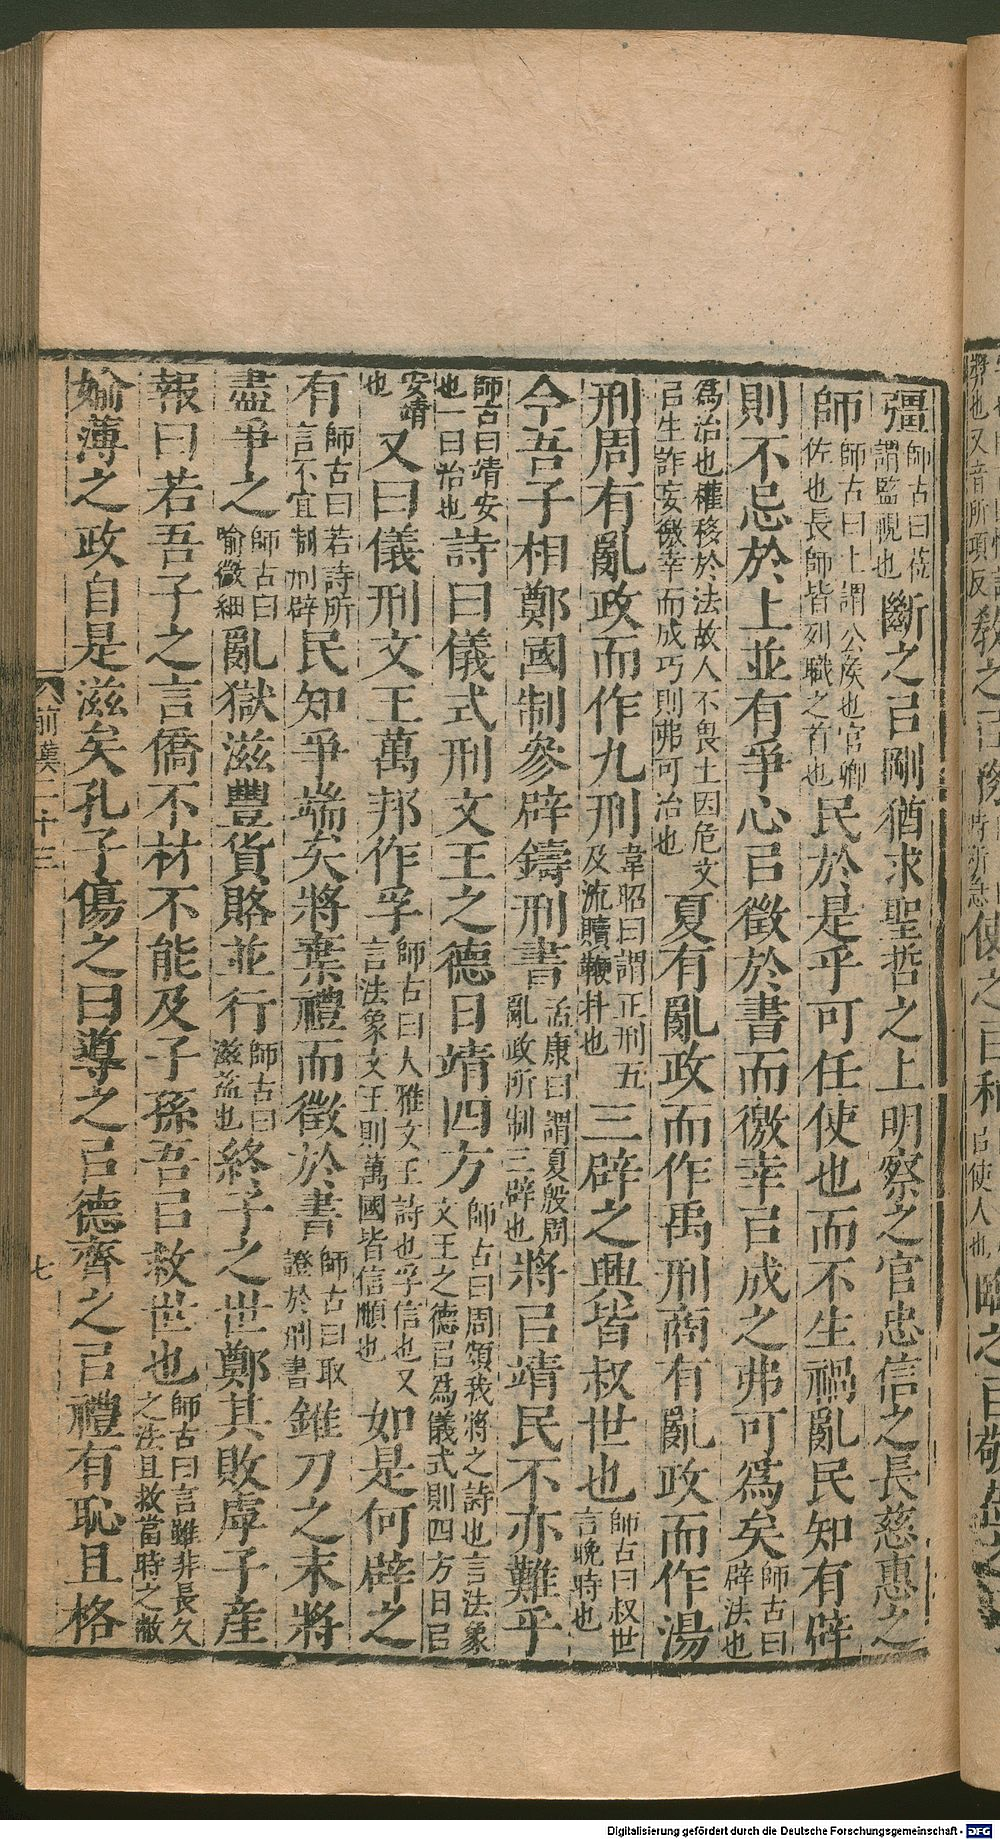 彊師古曰莅謂監視也斷之㠯剛猶求聖哲之上明察之官忠信之長慈惠之
師師古曰上謂公侯也官卿佐也長師皆列職之首也民於是乎可任使也而不生禍亂民知有辟
則不忌於上並有爭心㠯徵於書而徼幸㠯成之弗可爲矣師古曰辟法也
爲治也權移於法故人不畏上因危文㠯生詐妄徼幸而成巧則弗可治也夏有亂政而作禹刑商有亂政而作湯
刑周有亂政而作九刑韋昭曰謂正刑五及流贖鞭扑也三辟之興皆叔世也師古曰叔世言晚時也
今吾子相鄭國制參辟鑄刑書孟康曰謂夏殷周亂政所制三辟也將㠯靖民不亦難乎
師古曰靖安也一曰治也詩曰儀式刑文王之德日靖四方師古曰周頌我將之詩也言法象文王之德㠯爲儀式則四方日㠯
安靖也又曰儀刑文王萬邦作孚師古曰大雅文王詩也孚信也又言法象文王則萬國皆信順也如是何辟之
有師古曰若詩所言不宜制刑辟民知爭端矣將棄禮而徵於書師古曰取證於刑書錐刀之末將
盡爭之師古曰喻微細亂獄滋豐貨賂並行師古曰滋益也終子之世鄭其敗虖子產
報曰若吾子之言僑不材不能及子孫吾㠯救世也師古曰言雖非長久之法且救當時之敝
媮薄之政自是滋矣孔子傷之曰導之㠯德齊之㠯禮有恥且格
前漢二十三
七
Digitalisierung gefördert durch die Deutsche Forschungsgemeinschaft - DFG